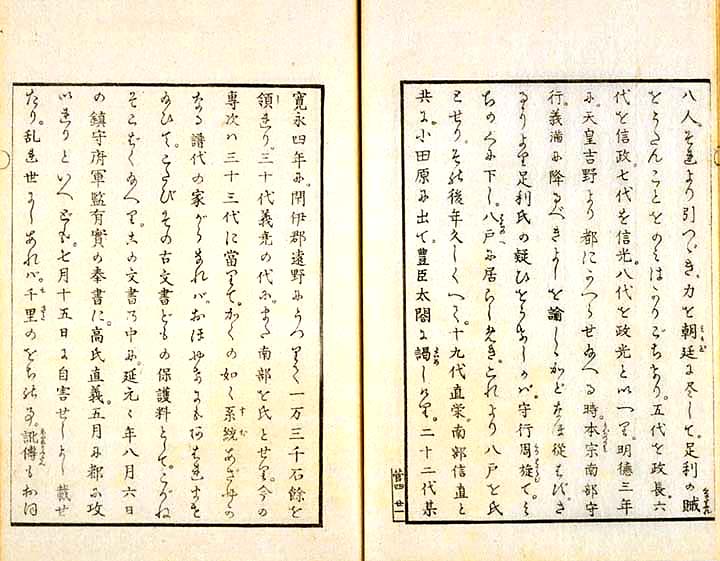 八人。それより引つゞき、力を朝廷に尽して、足利の賊
をうたんことをのみはかりごちたり。五代を政長、六
代を信政、七代を信光、八代を政光といへり。明徳三年
に、天皇吉野より都にうつらせたまへる時、本宗南部守
行、義満に降るべきよしを諭しゝかど、なほ従はざり
より足利氏の疑ひをうけしかば、守行周旋て、み
ちのくに下し、八戸に居らしめき。これより八戸を氏
とせり。その後年久しくへて、十九代直栄、南部信直と
共に、小田原に出て、豊臣太閤に謁しけり。二十二代某
寛永四年に、閉伊郡遠野にうつりて、一万三千石餘を
領せり。三十代義尭の代に、また南部を氏とせり。今の
專次ハ三十三代に當りて、かくの如く系統あざやか
なる譜代の家がらなれバ、おほやけにも
たまひて、こたびその古文書どもの保護料とて、こがね
そこばくたまへり。この文書の中に、延元々年八月六日
の鎮守府軍監有實の奉書に、高氏直義、五月に都に攻
いれりといへども、七月十五日に自害せしよし載せ
たり。乱れ世にしあれバ、千里のをちなる、訛傳もおほ